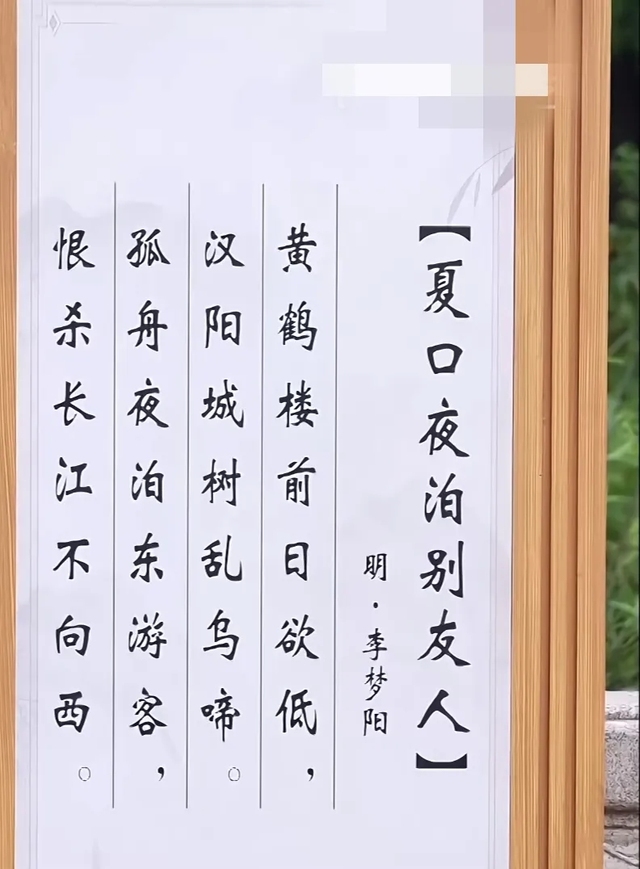 【夏口夜泊别友人】
明·李梦阳
黄鹤楼前日欲低，
汉阳城树乱乌啼。
孤舟夜泊东游客，
恨杀长江不向西。